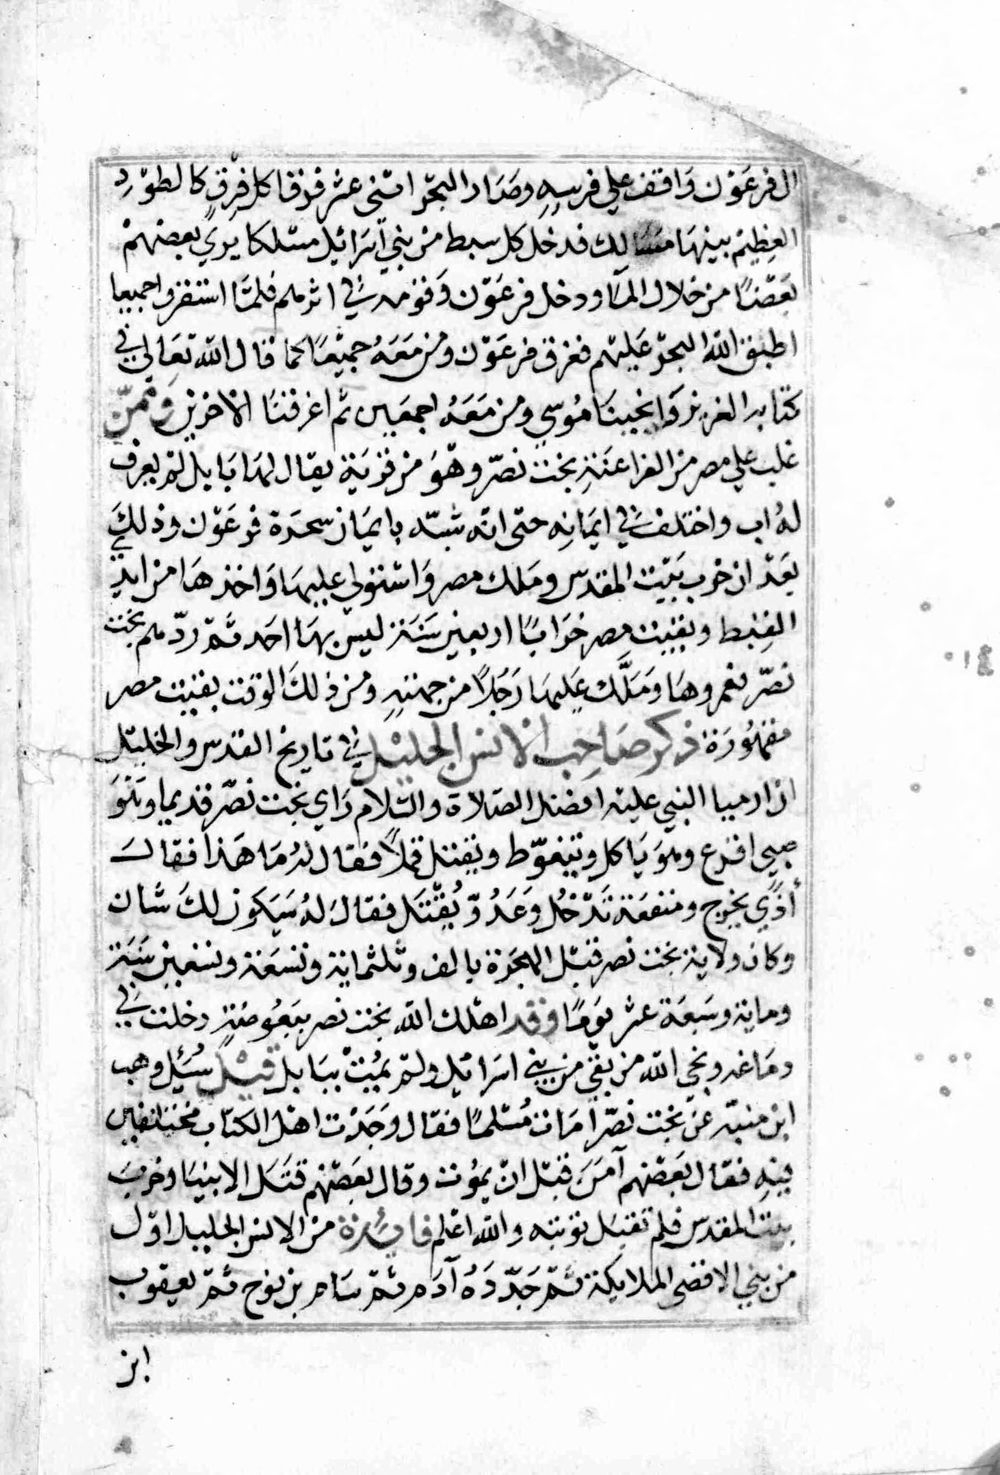 ال فرعون واقف علي فرسه وصار البحر اثنى عشر فرقا كل فرق كالطود
العظيم بينها مسالك فدخل كل سبط من بني اسرائيل مسلكا يري بعضهم
بعضا من خلال الماء ودخل فرعون وقومه في اثرهم فلما استقروا جميعا
اطبق الله البحر عليهم فغرق فرعون ومن معه جميعا كما قال الله تعالى في
كتابه العزيز وانجينا موسي ومن معه اجمعين ثم اغرقنا الاخرين وممن
غلب علي مصر من الفراعنة بخت نصر وهو من قرية يقال لها بابل لم يعرف
له اب واختلف في ايمانه حتى انه شبه بايمان سحرة فرعون وذلك
بعد ان خرب بيت المقدس وملك مصر واستولي عليها واخذها من ايدي
القبط وبقيت مصر خرابا اربعين سنة ليس بها احد ثم ردهم بخت
نصر فعمروها وملك عليها رجلا من جهته ومن ذلك الوقت بقيت مصر
مقهورة ذكر صاحب الانس الجليل في تاريخ القدس والخليل
ان ارميا النبي عليه افضل الصلاة والسلام راي بخت نصر قديما وهو
صبي اقرع وهو ياكل ويتغوط ويقتل قملا فقال له ما هذا فقال
أذًي يخرج ومنفعة تدخل وعدو يُقتل فقال له سيكون لك شان
وكان ولاية بخت نصر قبل الهجرة بالف وثلثماية وتسعة وتسعين سنة
وماية وسبعة عشر يوما وقد اهلك الله بخت نصر ببعوضة دخلت في
دماغه ونجي الله من بقي من بني اسرائيل ولم يمت ببابل قيل سُئل وهب
ابن منبه عن بخت نصر أمات مسلما فقال وجدت اهل الكتاب مختلفين
فيه فقال بعضهم آمن قبل ان يموت وقال بعضهم قتل الانبيا وخرب
بيت المقدس فلم تقبل توبته والله اعلم فائدة من الانس الجليل اول
من بني الاقصى الملايكة ثم جدده آدم ثم سام بن نوح ثم يعقوب
ابن